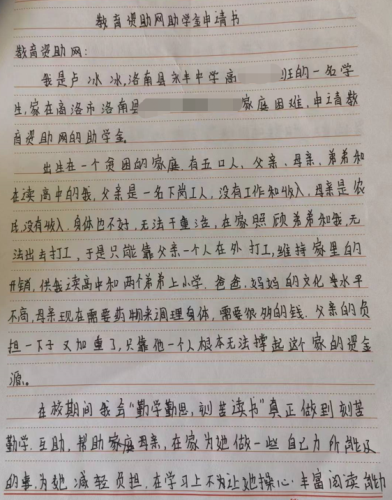 教育资助网助学金申请书
教育资助网:
我是卢冰冰,洛南县永丰中学高 班的一名学
生,家在商洛市洛南县 家庭困难,申请教
育资助网的助学金。
出生在一个贫困的家庭,有五口人,父亲、母亲、弟弟和
在读高中的我,父亲是一名下岗工人,没有工作和收入,母亲是农
民,没有收入,身体也不好,无法干重活,在家照顾弟弟和我,无
法出去打工,于是只能靠父亲一个人在外打工,维持家里的
开销,供我读高中和两个弟弟上小学。爸爸、妈妈的文化水平
不高,母亲现在需要药物来调理身体,需要很多的钱。父亲的负
担一下子又加重了,只靠他一个人根本无法撑起这个家的资金
源。
在校期间我有“勤学勤思,刻苦读书”真正做到刻苦
勤学、互助,帮助母亲,在家为她做一些自己力所能及
的事,为她减轻负担,在学习上不为让她操心,丰富阅读能